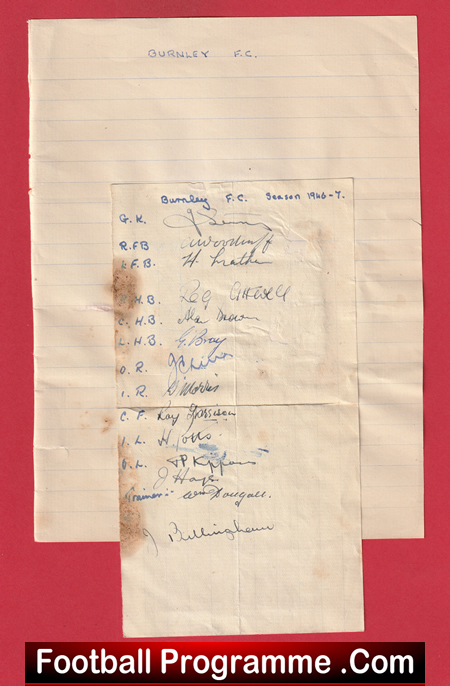 BURNLEY F.C.
Burnley F.C. Season 1946-7.
G.K. J
R.F.B. A Woodruff
L.F.B. H. Mather
R.H.B. Reg Attwell
C.H.B. Alan Brown
L.H.B. G. Bray
O.R. J Chew
I.R. Morris
C.F. Ray Harrison
I.L. H. Potts
O.L. P Kippax
J Hays
Trainer:- Wm Dougall.
J Billingham
Football Programme .Com